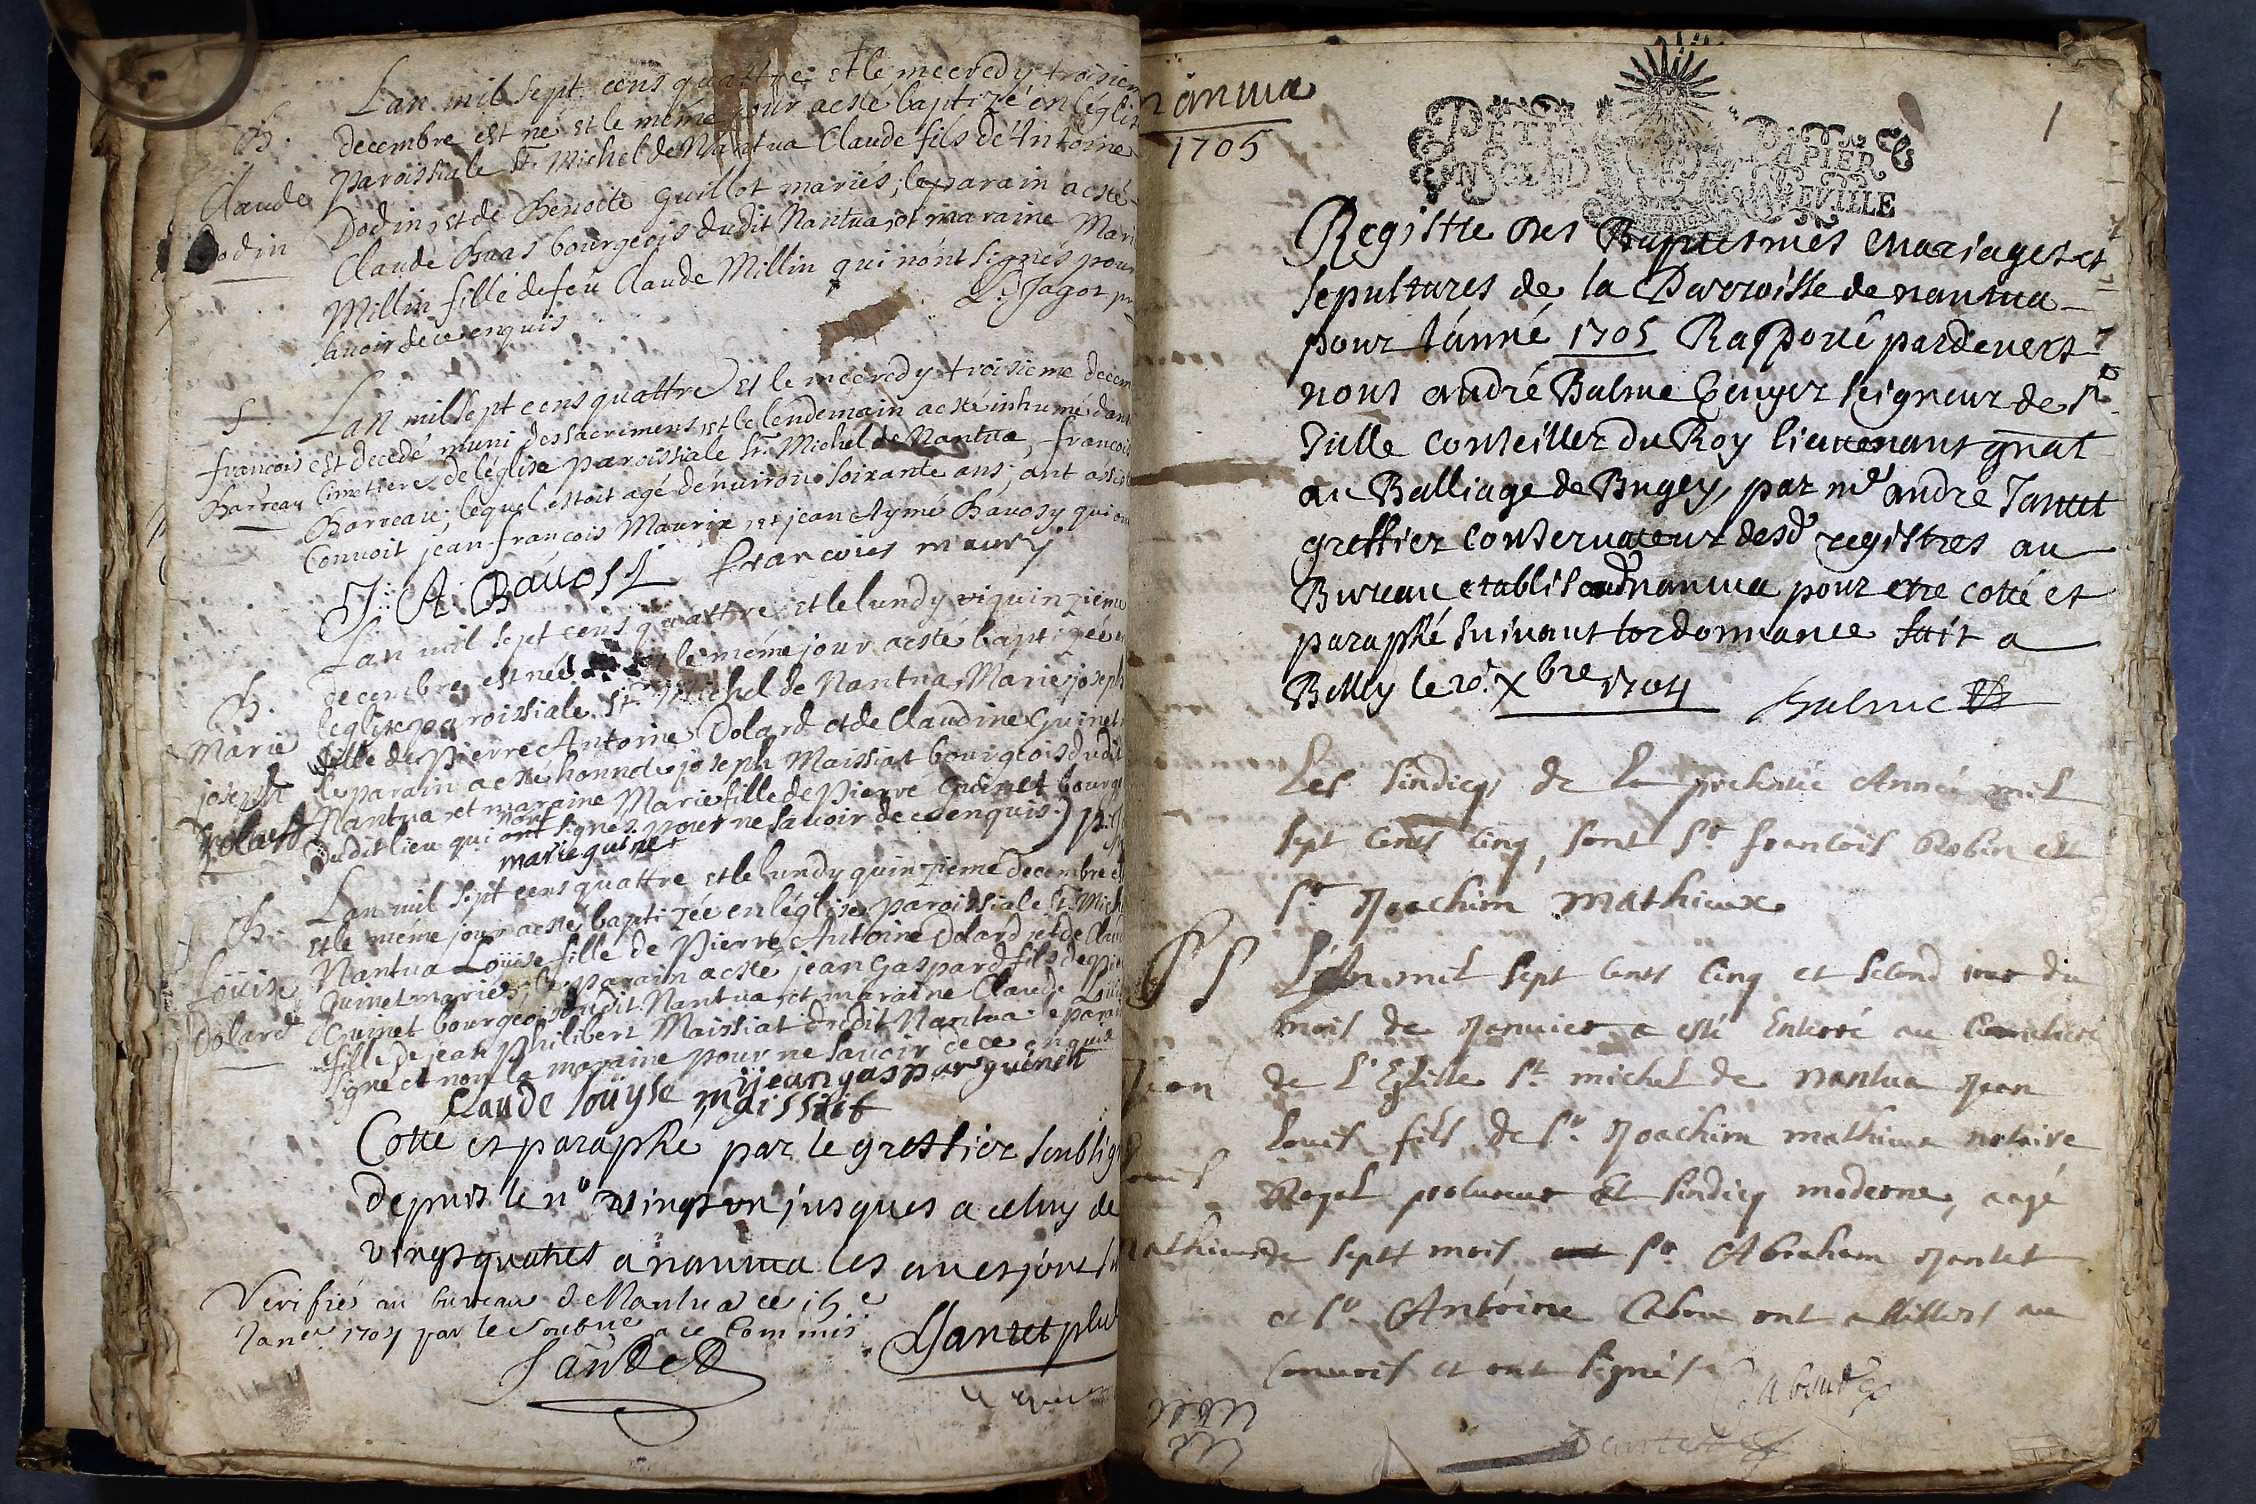 Lan mil sept cens quattre et le mecredy troisiem
B. decembre est né et le méme jour a esté baptizé en léglise
Claude paroissiale St. Michel de Nantua Claude fils de Antoine
Dodin Dodin et de Benoite Guillot mariés; le parain a esté
Claude Buas bourgeois dudit Nantua, et maraine Marie
Millin fille de feu Claude Millin qui nónt signés pour
sauoir de ce enquis L. Jagot
Lan mil sept cens quattre et le mecredy troisieme decem
S. est decedé muni des sacremens et le lendemain a esté inhumé dans
françois Cimettiere de léglise paroissiale St. Michel de Nantua, françois
Barreau Barreau; lequel estoit agé dénuiron soixante ans; ont assisté
Conuoit jean-françois Maurix et jean Aymé Báuosy qui ont
J: A. Báuosy francoies maury
Lan mil sept cens quattre et le lundy quinzieme
decembre est née et le méme jour a esté baptizée
B. leglise paroissiale St. Michel de Nantua, Marie joseph
Marie fille de Pierre Antoine Dolard et de Claudine Guinet
joseph le parain a esté honnete joseph Maissiat bourgeois dudit
Dolard Nantua et maraine Marie fille de Pierre Guinet bourge
dudit lieu qui nont signés pour ne sauoir de ce enquis.
marie guinet
Lan mil sept cens quattre et le lundy quinzieme decembre
B. et le méme jour a esté baptizée en léglise paroissiale St. Mich
Loüise Nantua Loüise fille de Pierre Antoine Dolard et de Claud
Dolard Guinet mariés; le parain a esté jean Gaspard fils de Pie
Guinet bourgeois dudit Nantua, et maraine Claude Loüise
fille de jean Philibert Maissiat dudit Nantua: le parain
signe et non la maraine pour ne sauoir de ce enquis
jean gaspar guinet
Claude loüyse maissiat
Cotté et paraphé par le greffier soubsigné
depuis le no vingt un jusques a celuy de
vingt quatres a nantua les an et jour
Verifié au bureau de Nantua ce 15e
Janer 1704 par le Commis
Jantet
nantua
1705
1
PETIT PAPIER
EN SCEAU
Registre des Baptesmes mariages et
sepultures de la Parroisse de nantua
pour lánné 1705 Rapporté pardevers
nous andré Balme Ecuyer seigneur de St
Julle conseiller du Roy lieutenant gnal
au Balliage de Bugey, par me andre Jantet
greffier conservateur desd registres au
Bureau etablis aud nantua pour etre cotté et
paraphé suivant lordonnance fait a
Belley le 20. Xbre 1704 Balme
Les sindicqs de la presente Année mil
sept cents cinq, sont Sr françois Robin et
Sr Joachim Mathieux
L'An mil sept cents cinq et second jour du
mois de Janvier a esté Enterré au Cimetiere
Jean de L'Eglise St michel de nantua Jean
Louis Louis fils de Sr. Joachim mathieux notaire
Royal procureur Et sindicq moderne, aagé
Mathieux de sept mois Sr. Abraham Jantet
et Sr Antoine Cabou ont assistes au
convois et ont signés